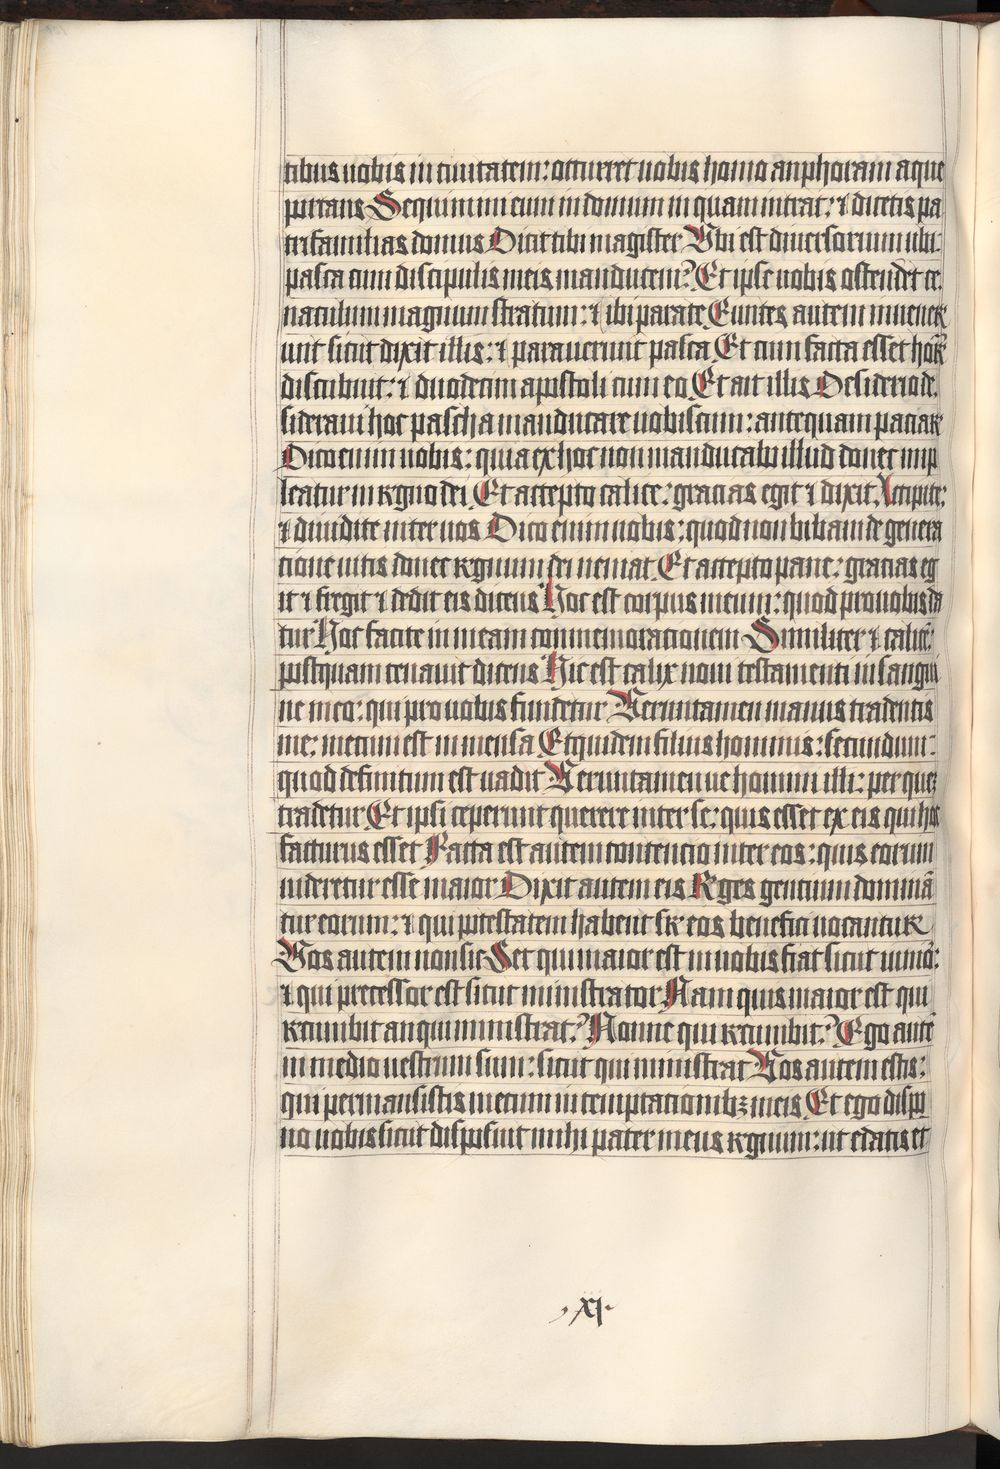 tibus uobis in ciuitatem: occurret uobis homo anphoram aque
portans Sequimini eum in domum in quam intrat: ⁊ dicetis pa
trifamilias domus Dicit tibi magister Vbi est diuersorium ubi:
pasca cum discipulis meis manducem? Et ipse uobis ostendet ce:
naculum magnum stratum: ⁊ ibi parate Euntes autem inuenerꝛ
unt sicut dixit illis: ⁊ parauerunt pasca Et cum facta esset hoꝛ̃
discubuit: ⁊ duodecim apostoli cum eo Et ait illis Desiderio de:
sideraui hoc pascha manducare uobiscum: antequam paciar
Dico enim uobis: quia ex hoc non manducabo illud donec imp
leatur in regno dei Et accepto calice: gracias egit ⁊ dixit Accipite:
⁊ diuidite inter uos Dico enim uobis: quod non bibam de genera
cione uitis donec regnum dei ueniat Et accepto pane: gracias eg
it ⁊ fregit ⁊ dedit eis dicens Hoc est corpus meum: quod pro uobis da
tur Hoc facite in meam conmemoracionem Similiter ⁊ calicẽ:
postquam cenauit dicens Hic est calix noui testamenti in sangui
ne meo: qui pro uobis fundetur Veruntamen manus tradentis
me: mecum est in mensa Et quidem filius hominis: secundum:
quod definitum est uadit Veruntamen ue homini illi: per queʒ
tradetur Et ipsi ceperunt querere inter se: quis esset ex eis qui hoc
facturus esset Facta est autem contencio inter eos: quis eorum
uideretur esse maior Dixit autem eis Reges gencium dominã
tur eorum: ⁊ qui potestatem habent sr eos benefici uocantur
Vos autem non sic Set qui maior est in uobis fiat sicut iunioꝛ:
⁊ qui precessor est sicut ministrator Nam quis maior est qui
recumbit an qui ministrat? Nonne qui recumbit? Ego autẽ
in medio uestrum sum: sicut qui ministrat Vos autem estis:
qui permansistis mecum in temptacionibꝫ meis Et ego dispo
no uobis sicut disposuit mihi pater meus regnum: ut edatis et
·XI·